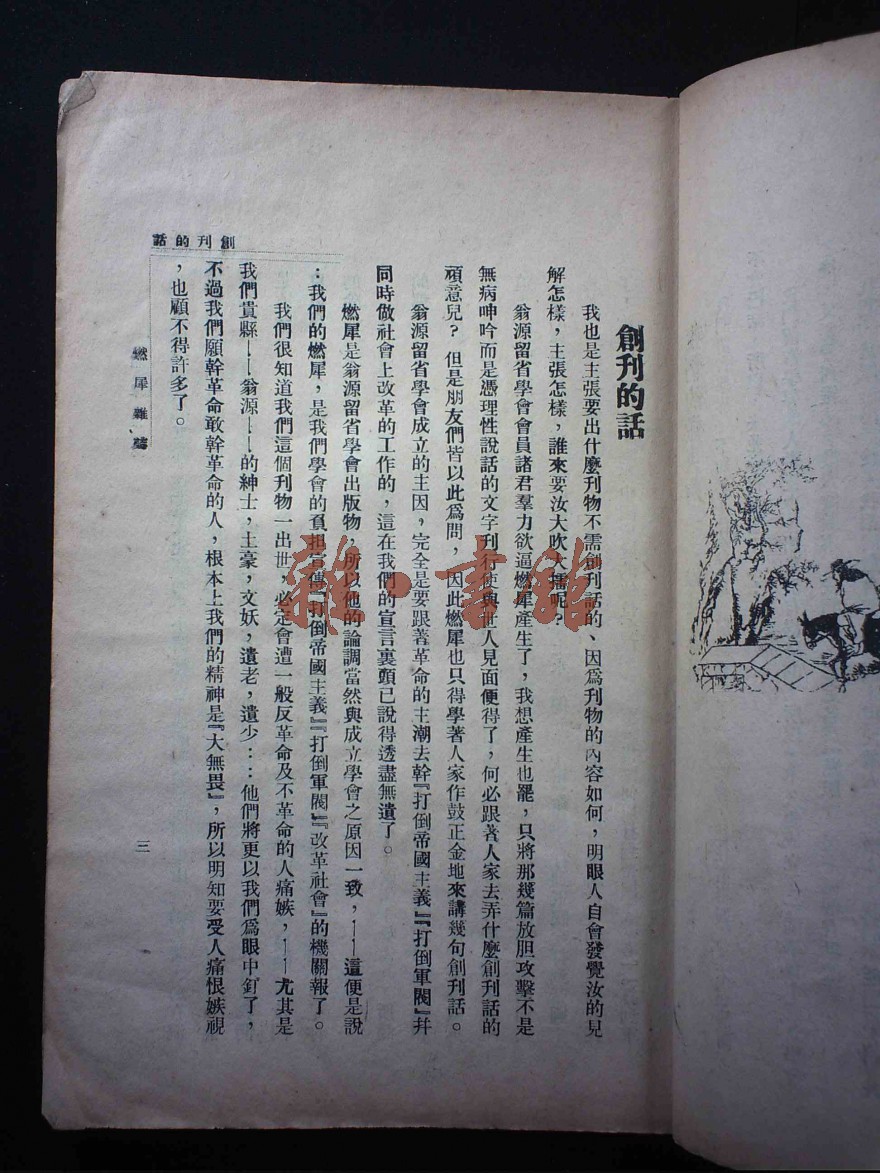 創刊的話
我也是主張要出什麼刊物不需創刊話的、因爲刊物的內容如何，明眼人自會發覺汝的見
解怎樣，主張怎樣，誰來要汝大吹大擂呢？
翁源留省學會會員諸君羣力欲逼燃犀產生了，我想產生也罷，只將那幾篇放胆攻擊不是
無病呻吟而是憑理性說話的文字刊行使與世人見面便得了，何必跟著人家去弄什麼創刊話的
頑意兒？但是朋友們皆以此爲問，因此燃犀也只得學著人家作鼓正金地來講幾句創刊話。
翁源留省學會成立的主因，完全是要跟著革命的主潮去幹『打倒帝國主義』『打倒軍閥』幷
同時做社會上改革的工作的，這在我們的宣言裏頭已說得透盡無遺了。
燃犀是翁源留省學會出版物，所以他的論調當然與成立學會之原因一致，——這便是說
：我們的燃犀，是我們學會的負担宣傳『打倒帝國主義』『打倒軍閥』『改革社會』的機關報了。
我們很知道我們這個刊物一出世，必定會遭一般反革命及不革命的人痛嫉，——尤其是
我們貴縣——翁源——的紳士，土豪，文妖，遺老，遺少：：他們將更以我們爲眼中釘了，
不過我們願幹革命敢幹革命的人，根本上我們的精神是『大無畏』，所以明知要受人痛恨嫉視
，也顧不得許多了。
創刊的話
燃犀雜誌
三
雜·書館